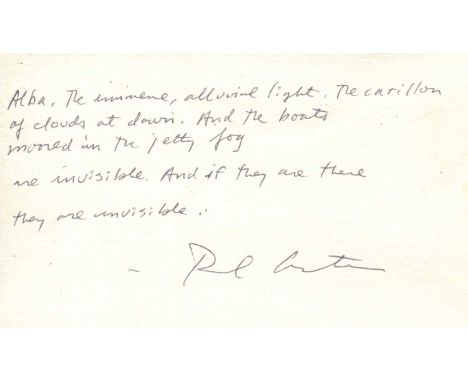 Alba. The immense, alluvial light. The carillon
of clouds at dawn. And the boats
moored in the jetty fog
are invisible. And if they are there
they are invisible.
- Paul Auster